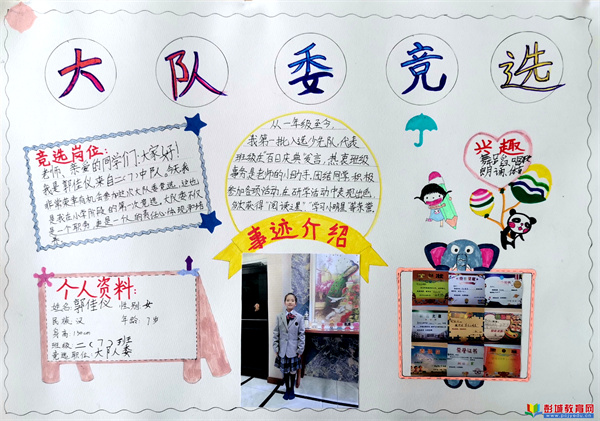 大队委竞选
竞选岗位:
老师、亲爱的同学们:大家好!
我是郭佳仪,来自二(7)中队。今天我
非常荣幸有机会参加这次大队委竞选,这也
是我在小学阶段的第一次竞选,大队委不仅
是一个职务,更是一个人的责任心体现
从一年级至今,
我第一批入选少先队,代表
班级在百日庆典发言,热衷班级
事务是老师的小助手,团结同学,积极
参加各项活动,在研学活动中表现出色,
多次获得"阅读之星""学习小明星"等荣誉。
事迹介绍
兴趣
舞蹈、唱歌
朗诵、
个人资料:
姓名:郭佳仪 性别:女
民族:汉 年龄:7岁
身高:130cm
班级:二(7)班
竞选职位:大队委
荣誉证书
彭城教育网